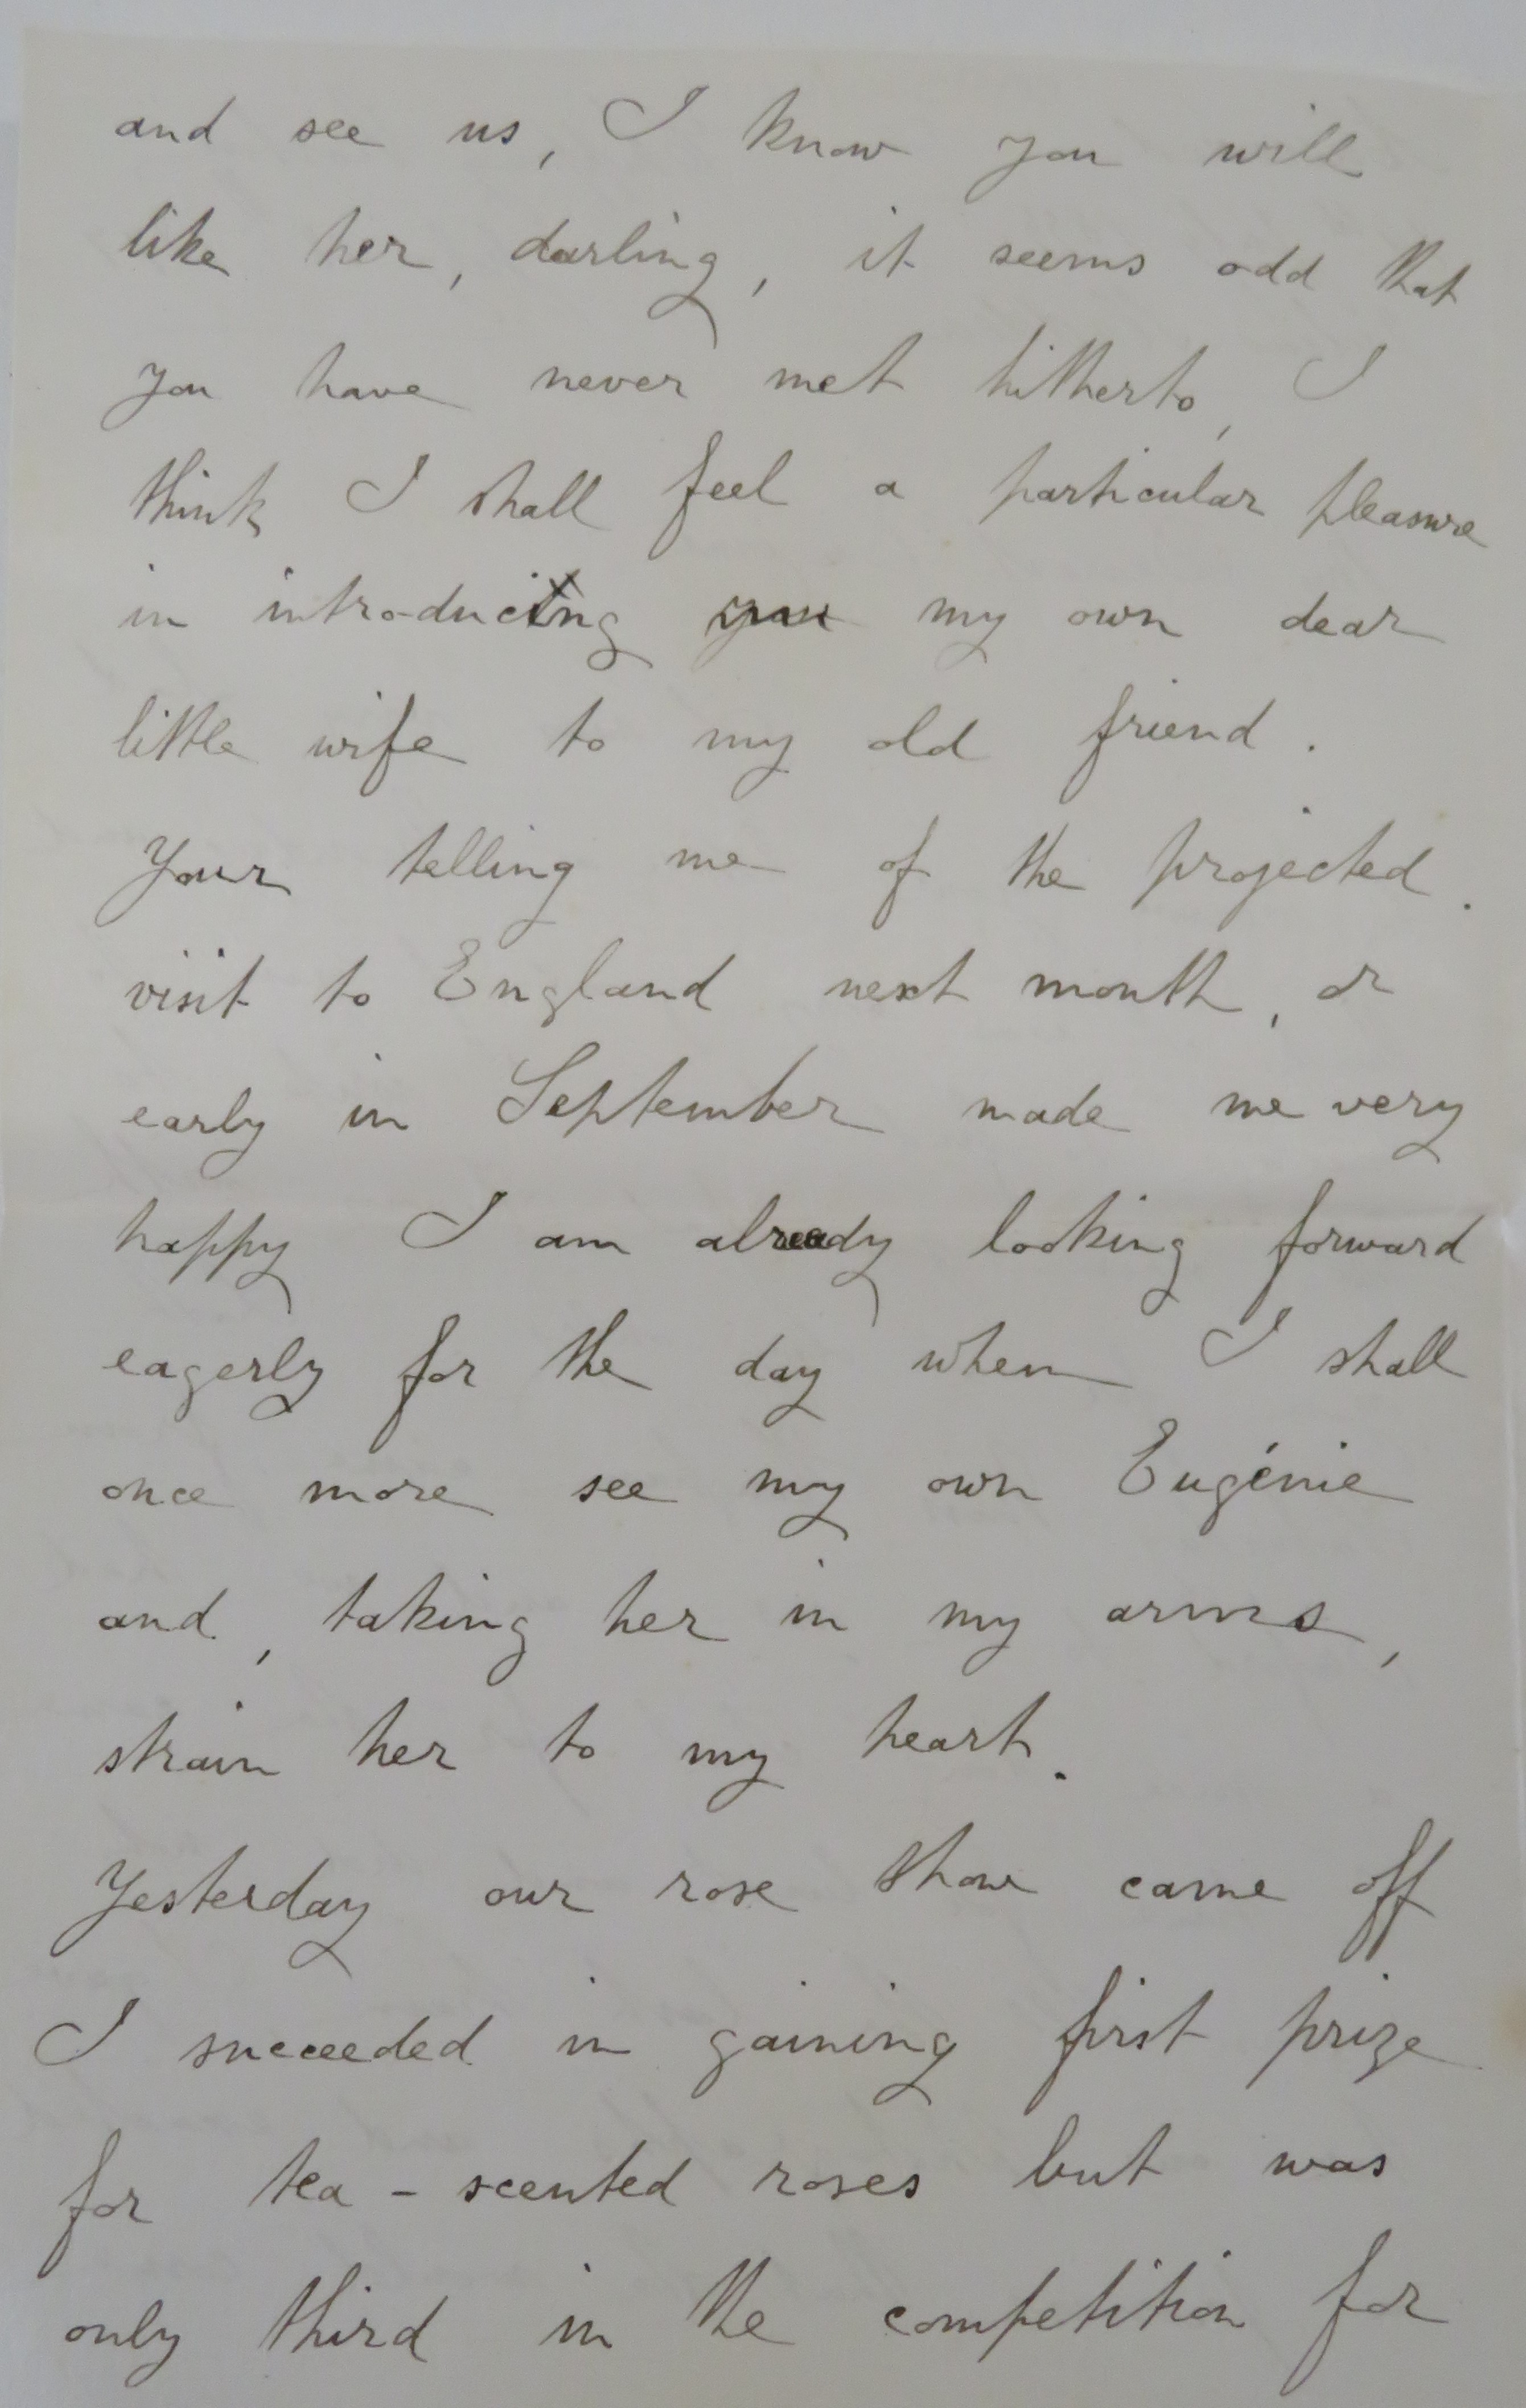 and see us, I know you will
like her, darling, it seems odd that
you have never met hitherto, I
think I shall feel a particular pleasure
in introducing you my own dear
little wife to my old friend.
Your telling me of the projected
visit to England next month, or
early in September made me very
happy I am already looking forward
eagerly for the day when I shall
once more see my own Eugénie
and, taking her in my arms,
strain her to my heart.
Yesterday our rose show came off
I succeeded in gaining first prize
for tea-scented roses but was
only third in the competition for